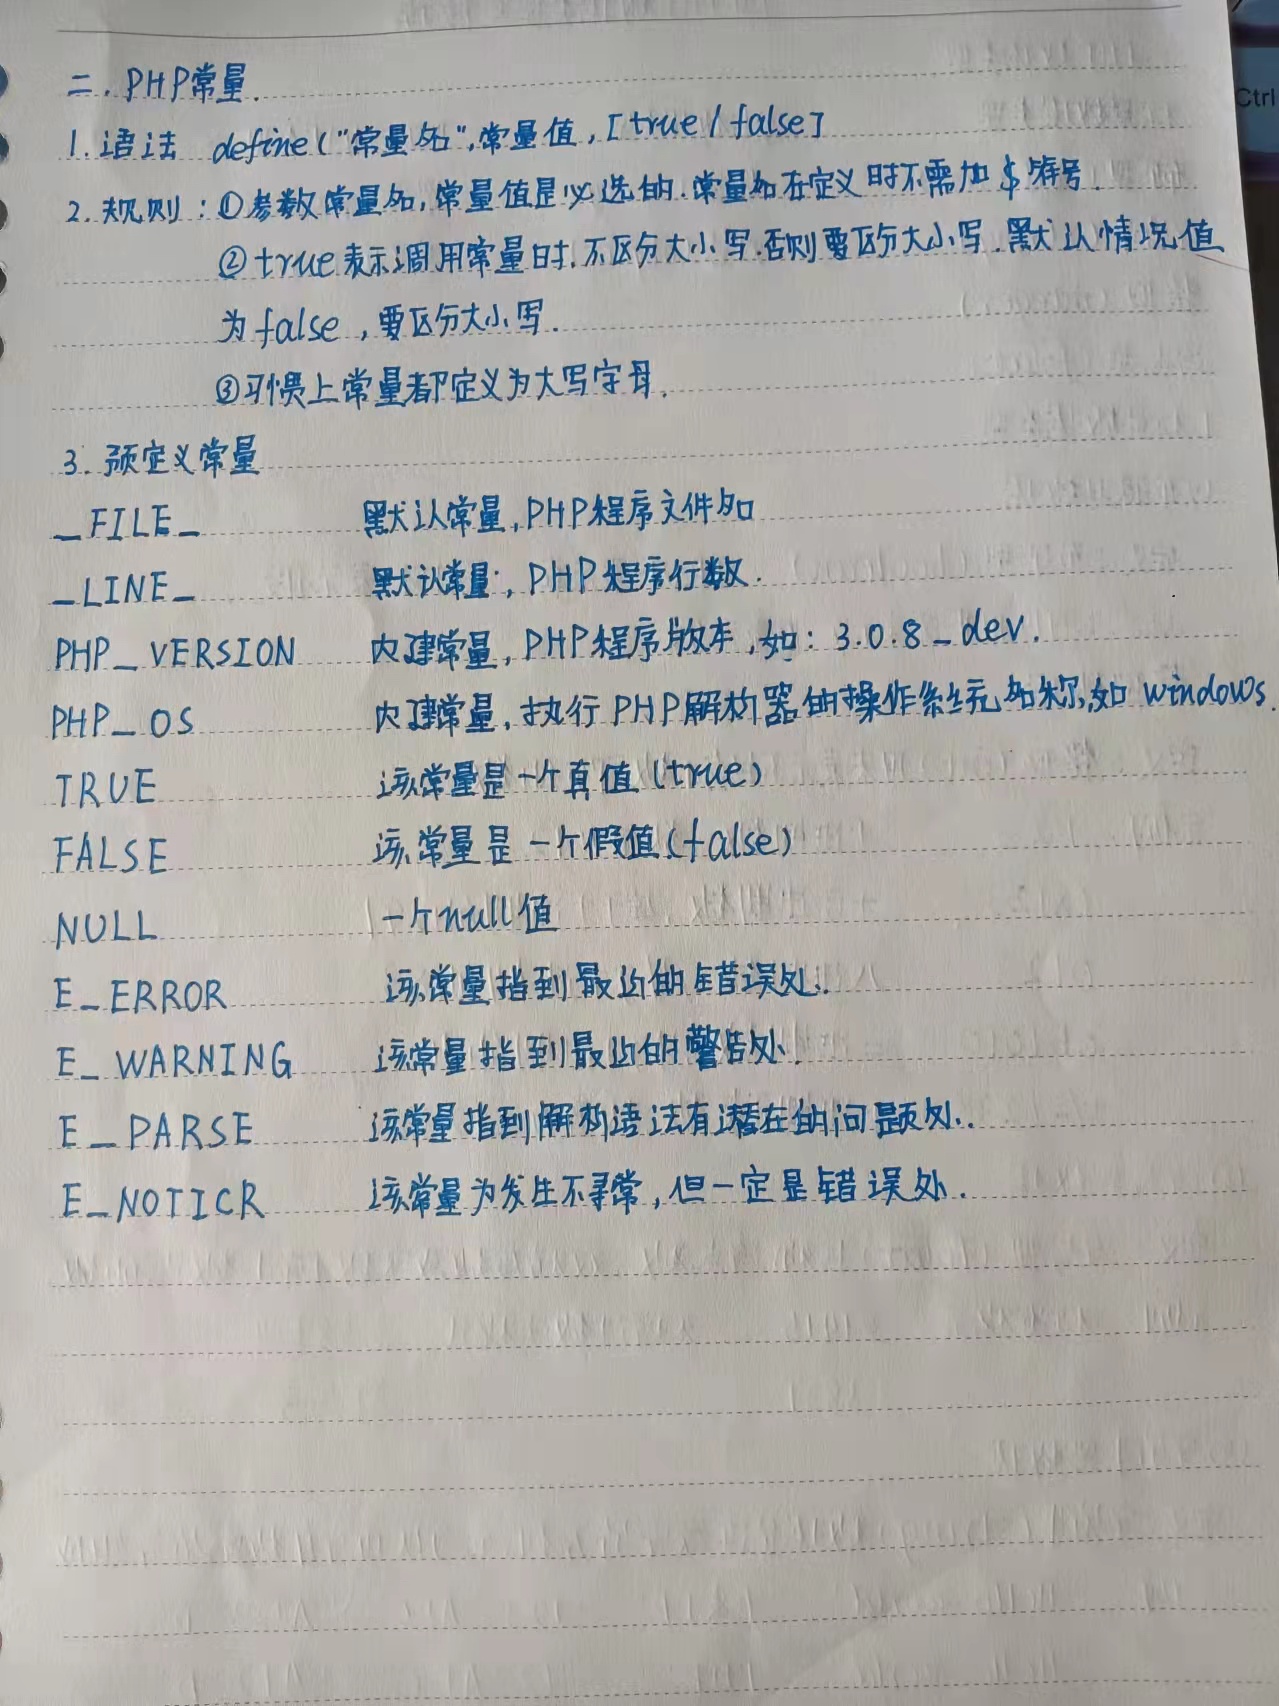 二. PHP常量.
1. 语法 define("常量名",常量值,[true/false]
2. 规则:①参数常量名,常量值是必选的.常量名在定义时不需加$符号.
②true表示调用常量时.不区分大小写.否则要区分大小写.默认情况值
为false,要区分大小写.
③习惯上常量都定义为大写字母.
3. 预定义常量
_FILE_ 默认常量,PHP程序文件名
_LINE_ 默认常量,PHP程序行数.
PHP_VERSION 内建常量,PHP程序版本,如:3.0.8_dev.
PHP_OS 内建常量,执行PHP解析器的操作系统名称,如windows.
TRUE 该常量是一个真值(true)
FALSE 该常量是一个假值(false)
NULL 一个null值
E_ERROR 该常量指到最近的错误处.
E_WARNING 该常量指到最近的警告处.
E_PARSE 该常量指到解析语法有潜在的问题处.
E_NOTICR 该常量为发生不寻常,但一定是错误处.
Ctrl